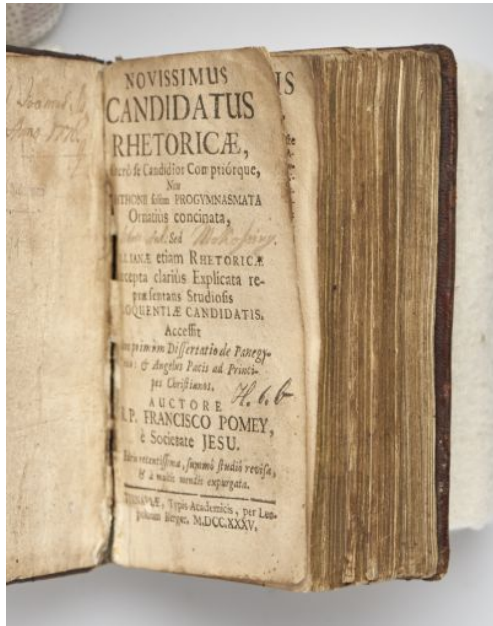 NOVISSIMUS
CANDIDATUS
RHETORICÆ,
se Candidior Comptiórque,
Non
solùm PROGYMNASMATA
Ornatius concinata,
Sed
etiam RHETORICÆ
clariùs Explicata re-
præsentans Studiosis
CANDIDATIS.
Accessit
Dissertatio de Panegy-
& Angelus Pacis ad Princi-
pes Christianos.
H. 6. b
AUCTORE
P. FRANCISCO POMEY,
è Societate JESU.
recentissima, summô studiô revisa,
& à multis mendis expurgata.
Typis Academicis, per Leo-
Berger. M.DCC.XXXV.
IS